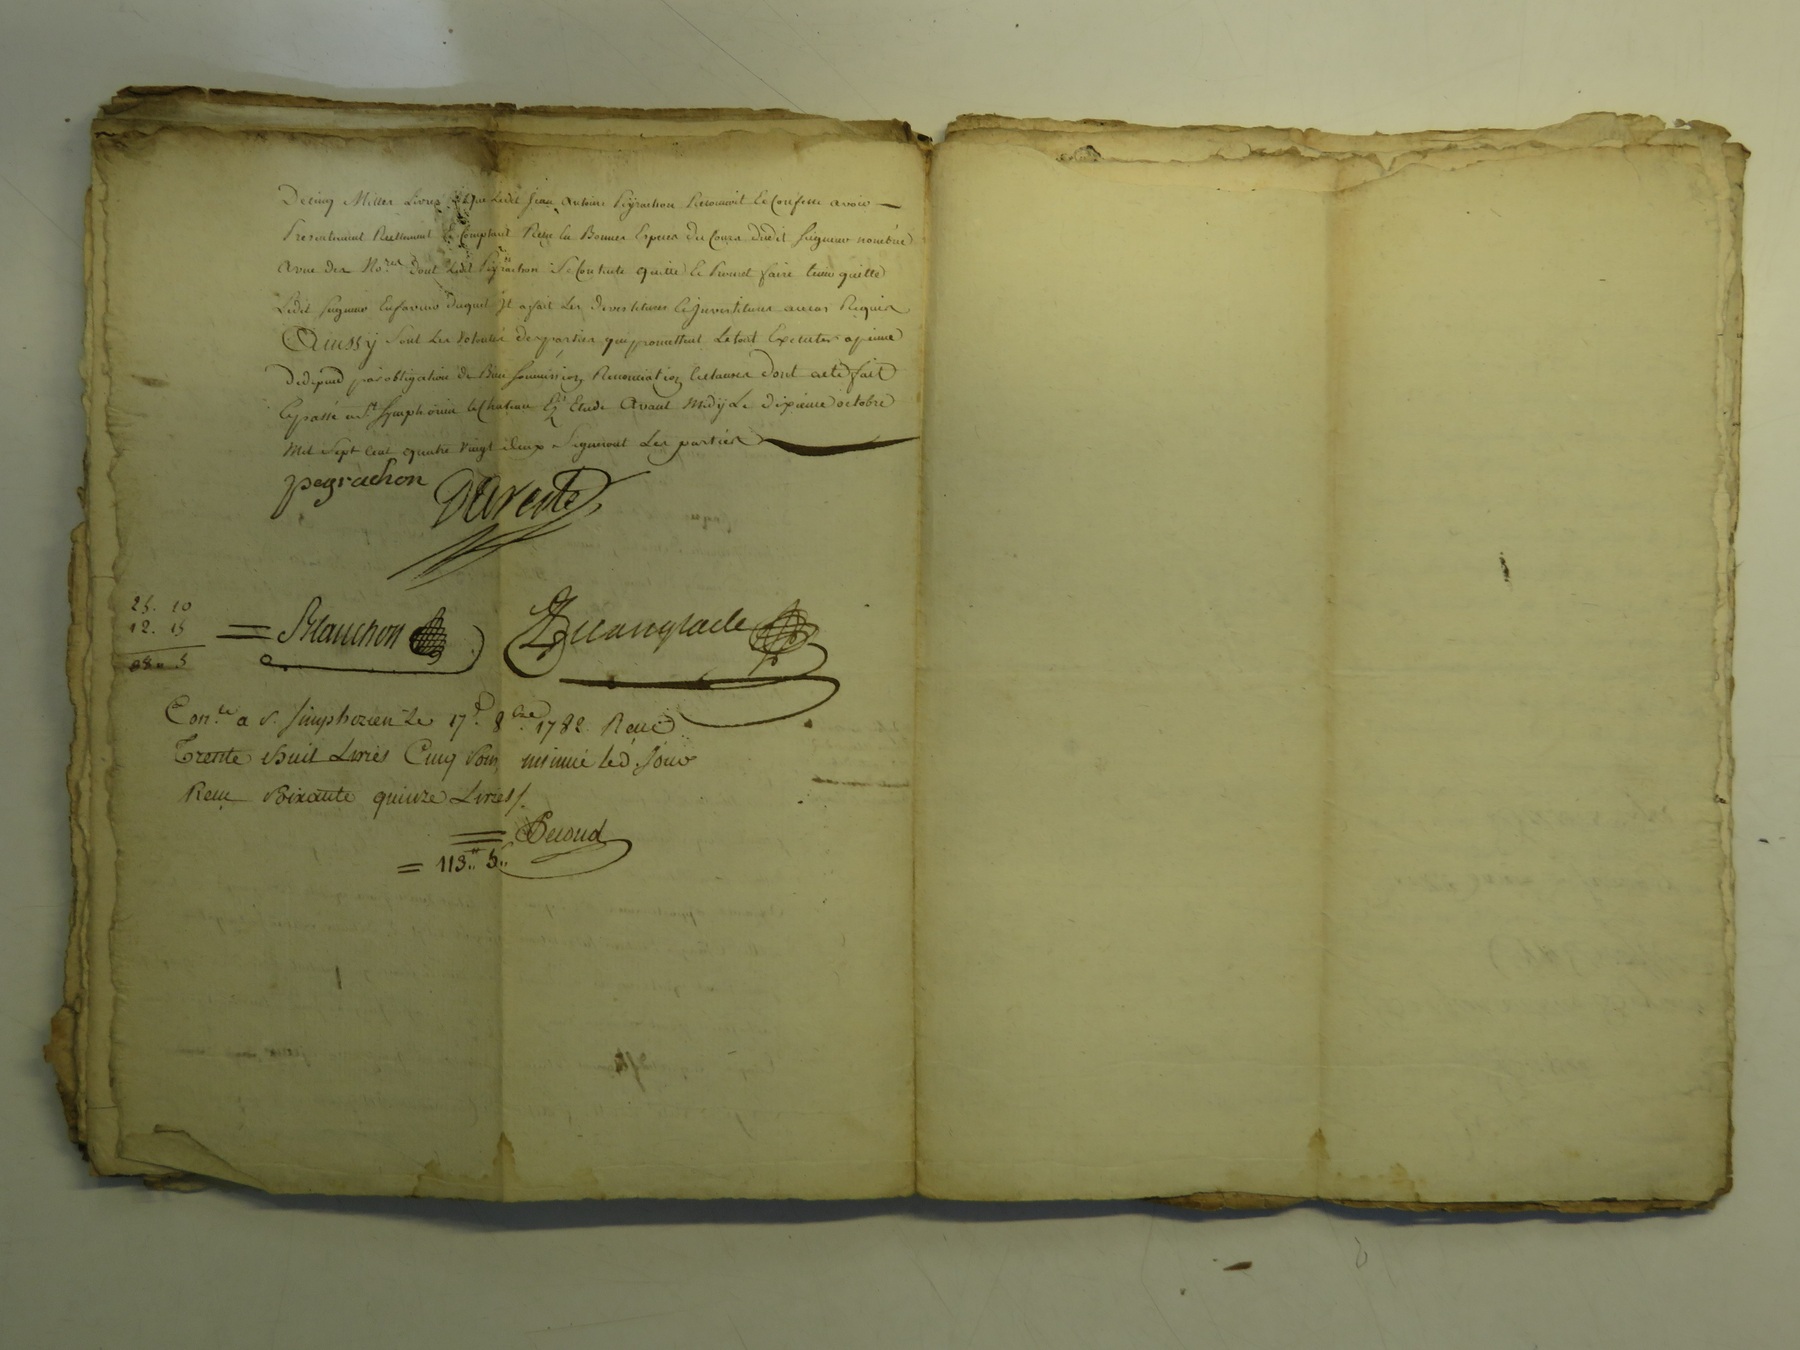 De cinq Milles Livres Et que Ledit Jean Antoine Peÿrachon Reconnoit Et Confesse avoir
Presentement Reellement Et Comptant Reçu En Bonnes Especes du Cours dudit Seigneur nombrée
a vue des No.res dont Ledit Peÿrachon Se Contente quitte Et Promet faire tenir quitte
Ledit Seigneur En faveur duquel Il a fait Les devestitures Et Investitures au cas Requis
Aussÿ Sont Les volontés des parties que promettent Le tout Executer a peine
De depend par obligation de Biens Soumission Renonciation Et clauses dont acte fait
Et passé a St Symphorien Le Chateau Et Etude Avant Midÿ Le dixieme octobre
Mil Sept Cent quatre Vingt deux Signeront Les parties
peyrachon
DAreste
25. 10
12. 15
38. 5
Blanchon
Con.lé a S. Simphorien Le 17e. 8bre 1782. Reçu
Trente Huit Livres Cinq Sous, insinué led. Jour
Reçu Soixante quinze Livres
Second
= 113.. 5..